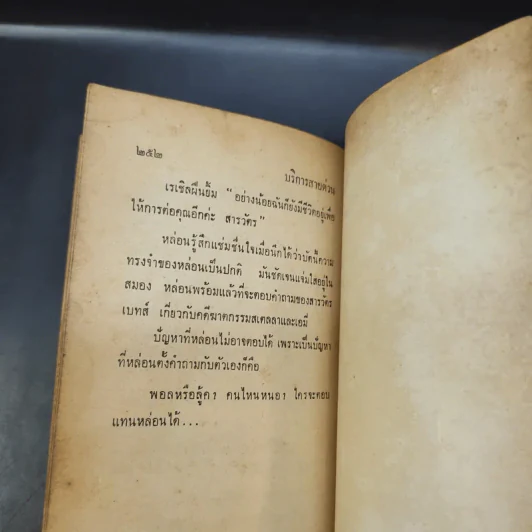 ๒๕๒
บริการสายด่วน
เรเชิลฝืนยิ้ม “อย่างน้อยฉันก็ยังมีชีวิตอยู่เพื่อ
ให้การต่อคุณอีกค่ะ สารวัตร”
หล่อนรู้สึกแช่มชื่นใจเมื่อนึกได้ว่าบัดนี้ความ
ทรงจำของหล่อนเป็นปกติ มันชัดเจนแจ่มใสอยู่ใน
สมอง หล่อนพร้อมแล้วที่จะตอบคำถามของสารวัตร
เบทส์ เกี่ยวกับคดีฆาตกรรมสเตลลาและเอมี่
ปัญหาที่หล่อนไม่อาจตอบได้ เพราะเป็นปัญหา
ที่หล่อนตั้งคำถามกับตัวเองก็คือ
พอลหรือลู้ค ? คนไหนหนอ ? ใครจะตอบ
แทนหล่อนได้...